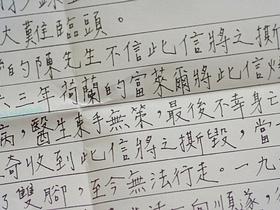 大難臨頭。
的陳先生不信此信將之撕
六三年荷蘭的富萊爾將此信
病，醫生束手無策，最後不幸身
奇收到此信將之撕毀，當
了雙腳，至今無法行走。一九
一向順遂，